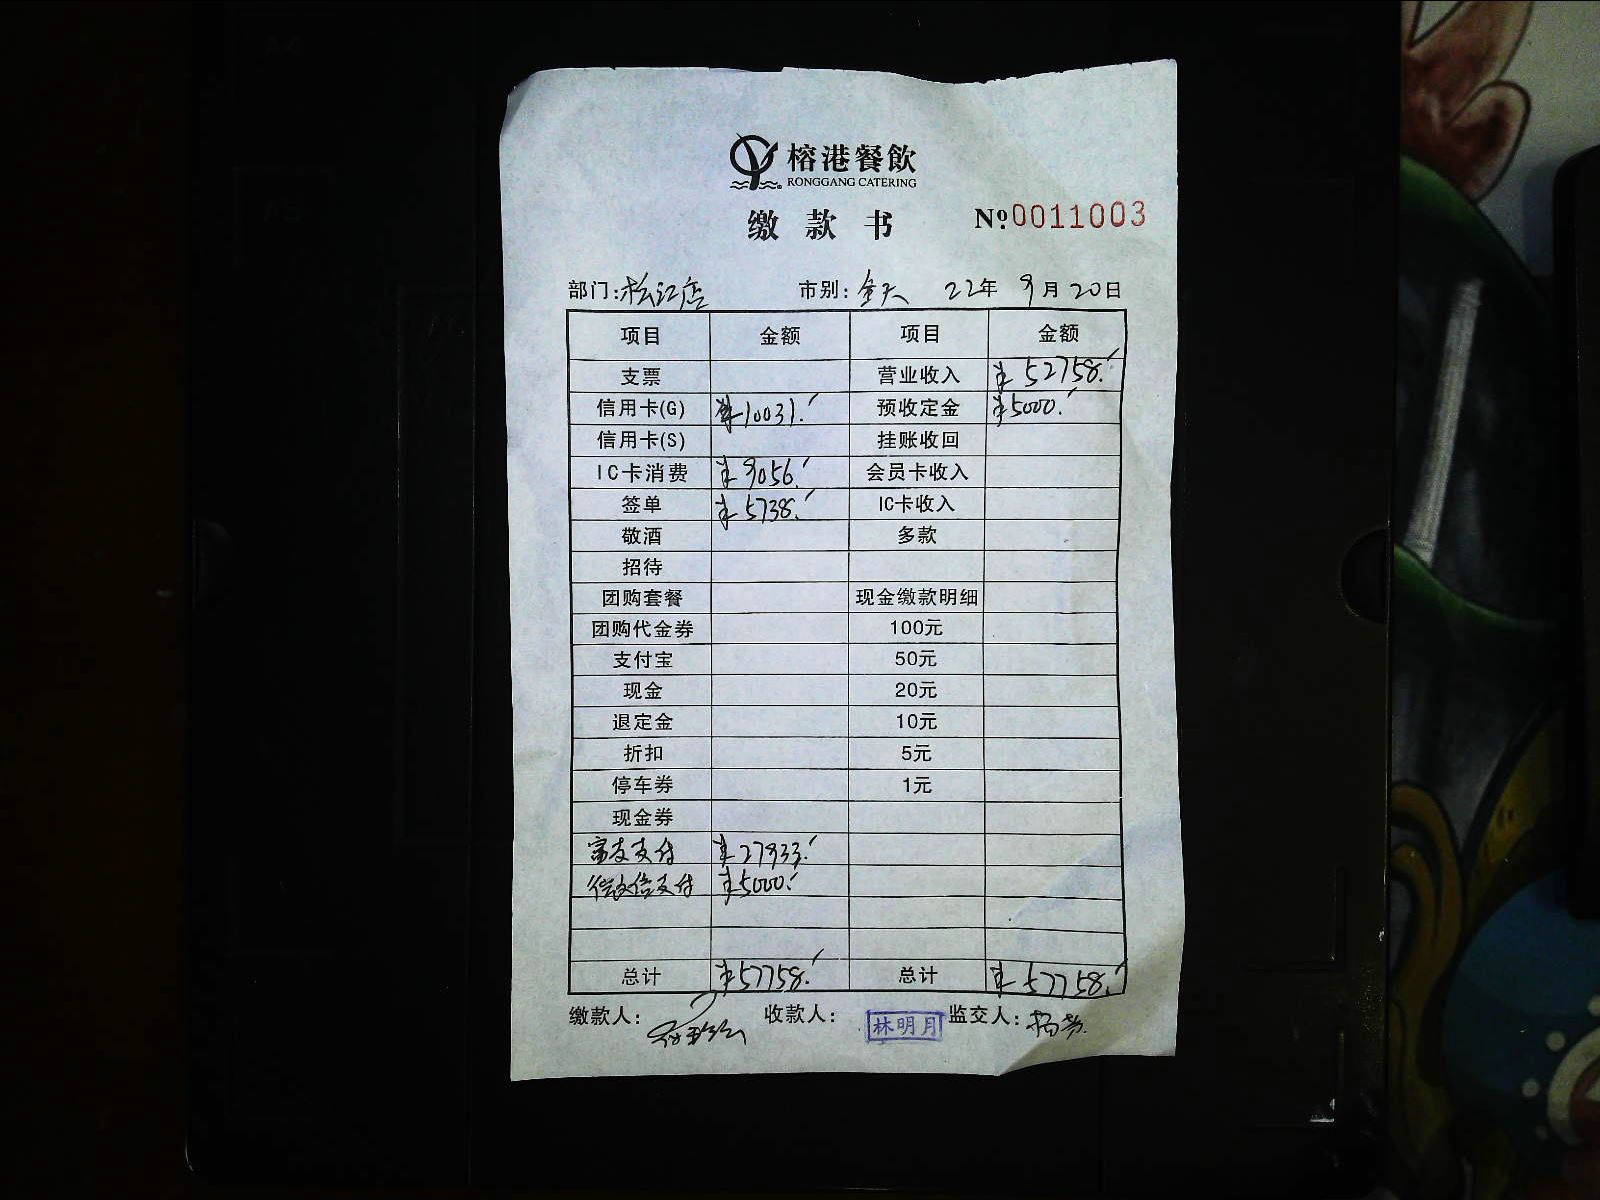 榕港餐飲
RONGGANG CATERING
缴款书 Nº:0011003
部门:松江店 市别:全天 22年 9月20日
项目 金额 项目 金额
支票 营业收入 ¥52758.
信用卡(G) ¥10031. 预收定金 ¥5000.
信用卡(S) 挂账收回
IC卡消费 ¥9056. 会员卡收入
签单 ¥5738. IC卡收入
敬酒 多款
招待
团购套餐 现金缴款明细
团购代金券 100元
支付宝 50元
现金 20元
退定金 10元
折扣 5元
停车券 1元
现金券
富友支付 ¥27933.
微信支付 ¥5000.
总计 ¥57758. 总计 ¥57758.
缴款人: 收款人: 林明月 监交人: